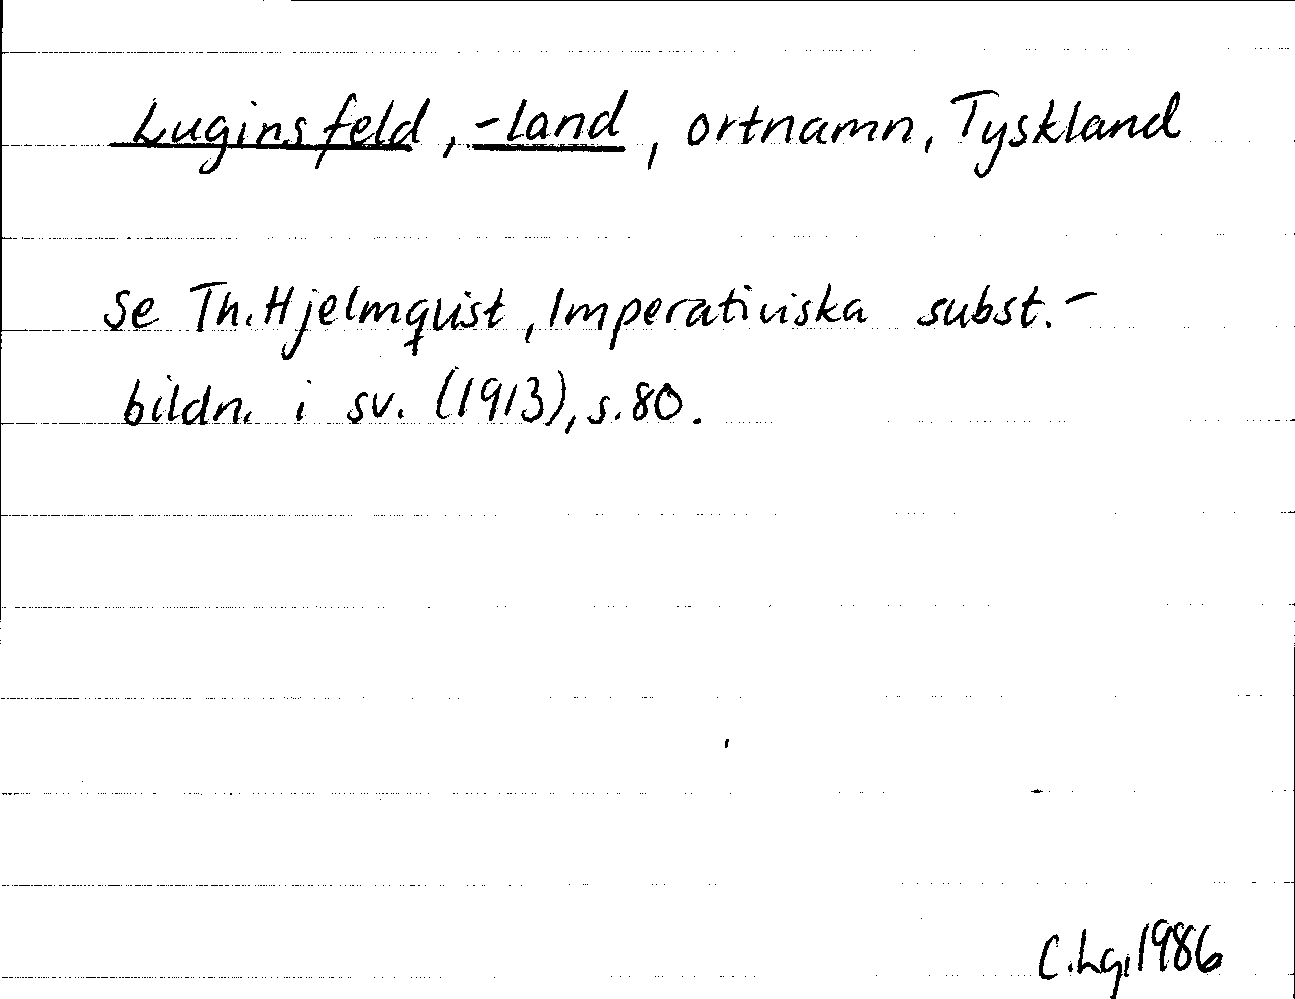 Luginsfeld, -land, ortnamn, Tyskland
se Th. Hjelmqvist, Imperativiska subst.-
bildn. i sv. (1913), s. 80.
C. Lg, 1986